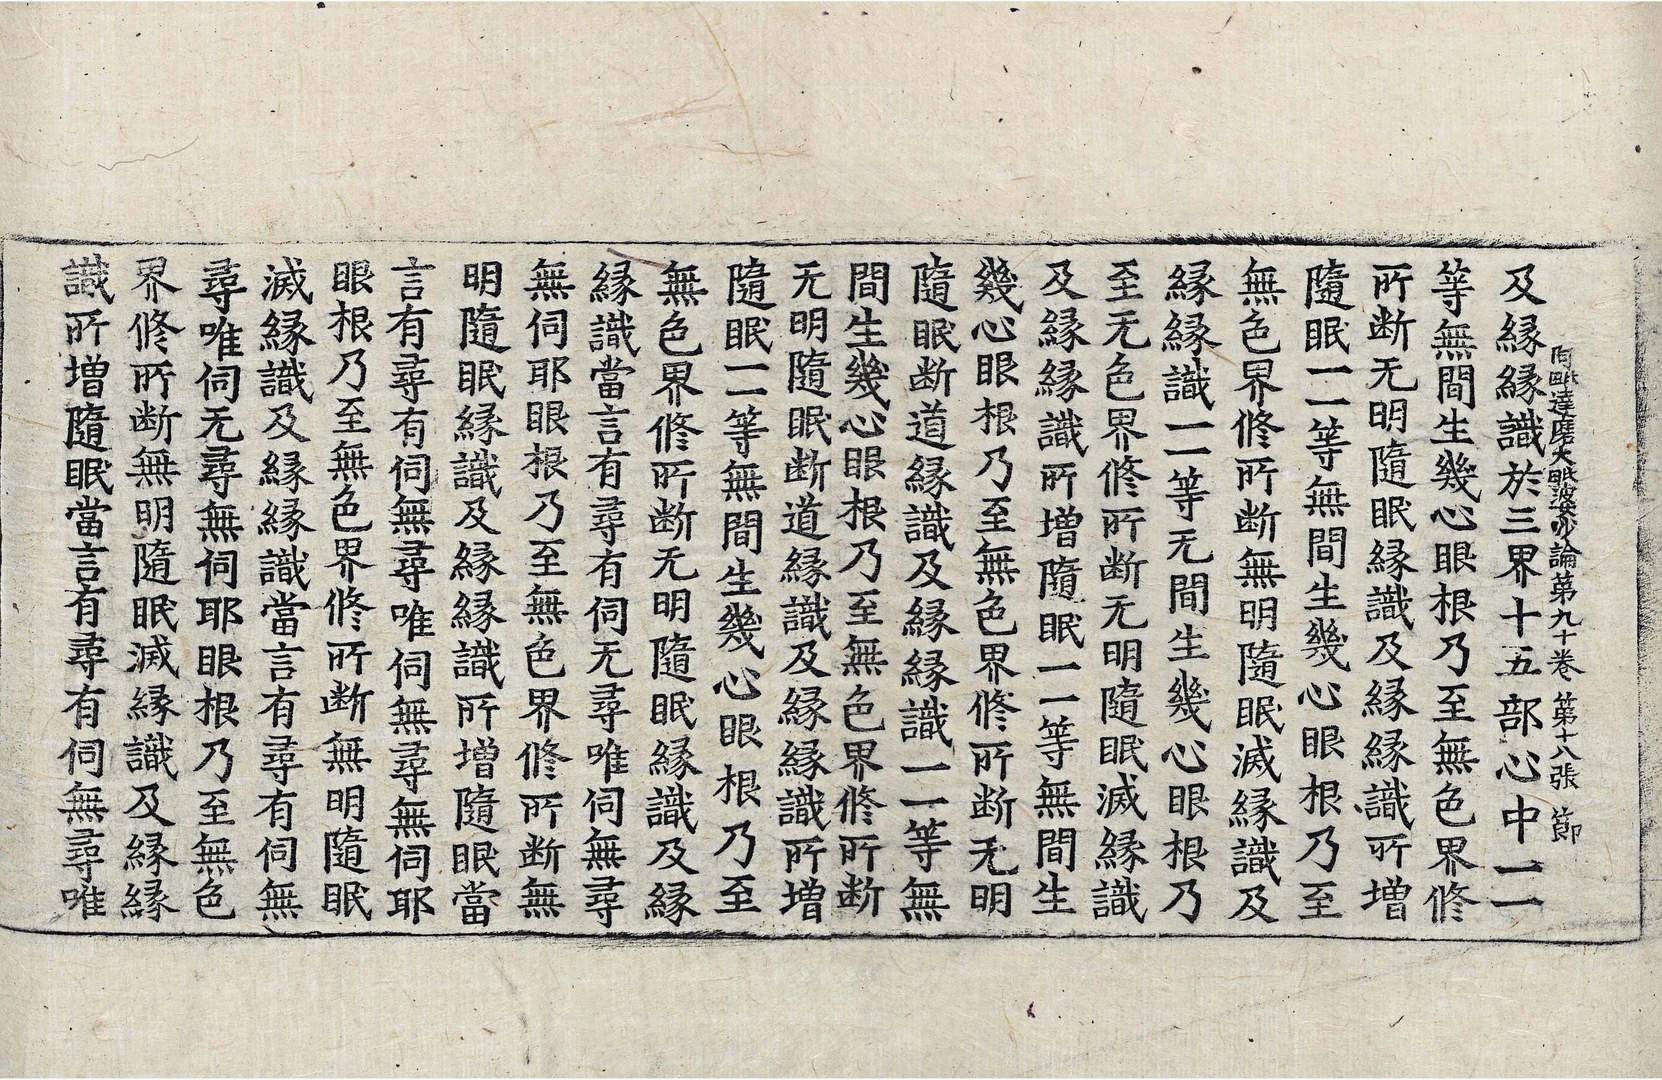 阿毗達磨大毗婆沙論第九十卷 第十八張 節
及縁縁識於三界十五部心中一一
等無間生幾心眼根乃至無色界修
所断无明隨眠縁識及縁縁識所增
隨眠一一等無間生幾心眼根乃至
無色界修所断無明隨眠滅縁識及
縁縁識一一等无間生幾心眼根乃
至无色界修所断无明隨眠滅縁識
及縁縁識所增隨眠一一等無間生
幾心眼根乃至無色界修所断无明
隨眠断道縁識及縁縁識一一等無
間生幾心眼根乃至無色界修所断
无明隨眠断道縁識及縁縁識所增
隨眠一一等無間生幾心眼根乃至
無色界修所断无明隨眠縁識及縁
縁識當言有尋有伺无尋唯伺無尋
無伺耶眼根乃至無色界修所断無
明隨眠縁識及縁縁識所增隨眠當
言有尋有伺無尋唯伺無尋無伺耶
眼根乃至無色界修所断無明隨眠
滅縁識及縁縁識當言有尋有伺無
尋唯伺无尋無伺耶眼根乃至無色
界修所断無明隨眠滅縁識及縁縁
識所增隨眠當言有尋有伺無尋唯